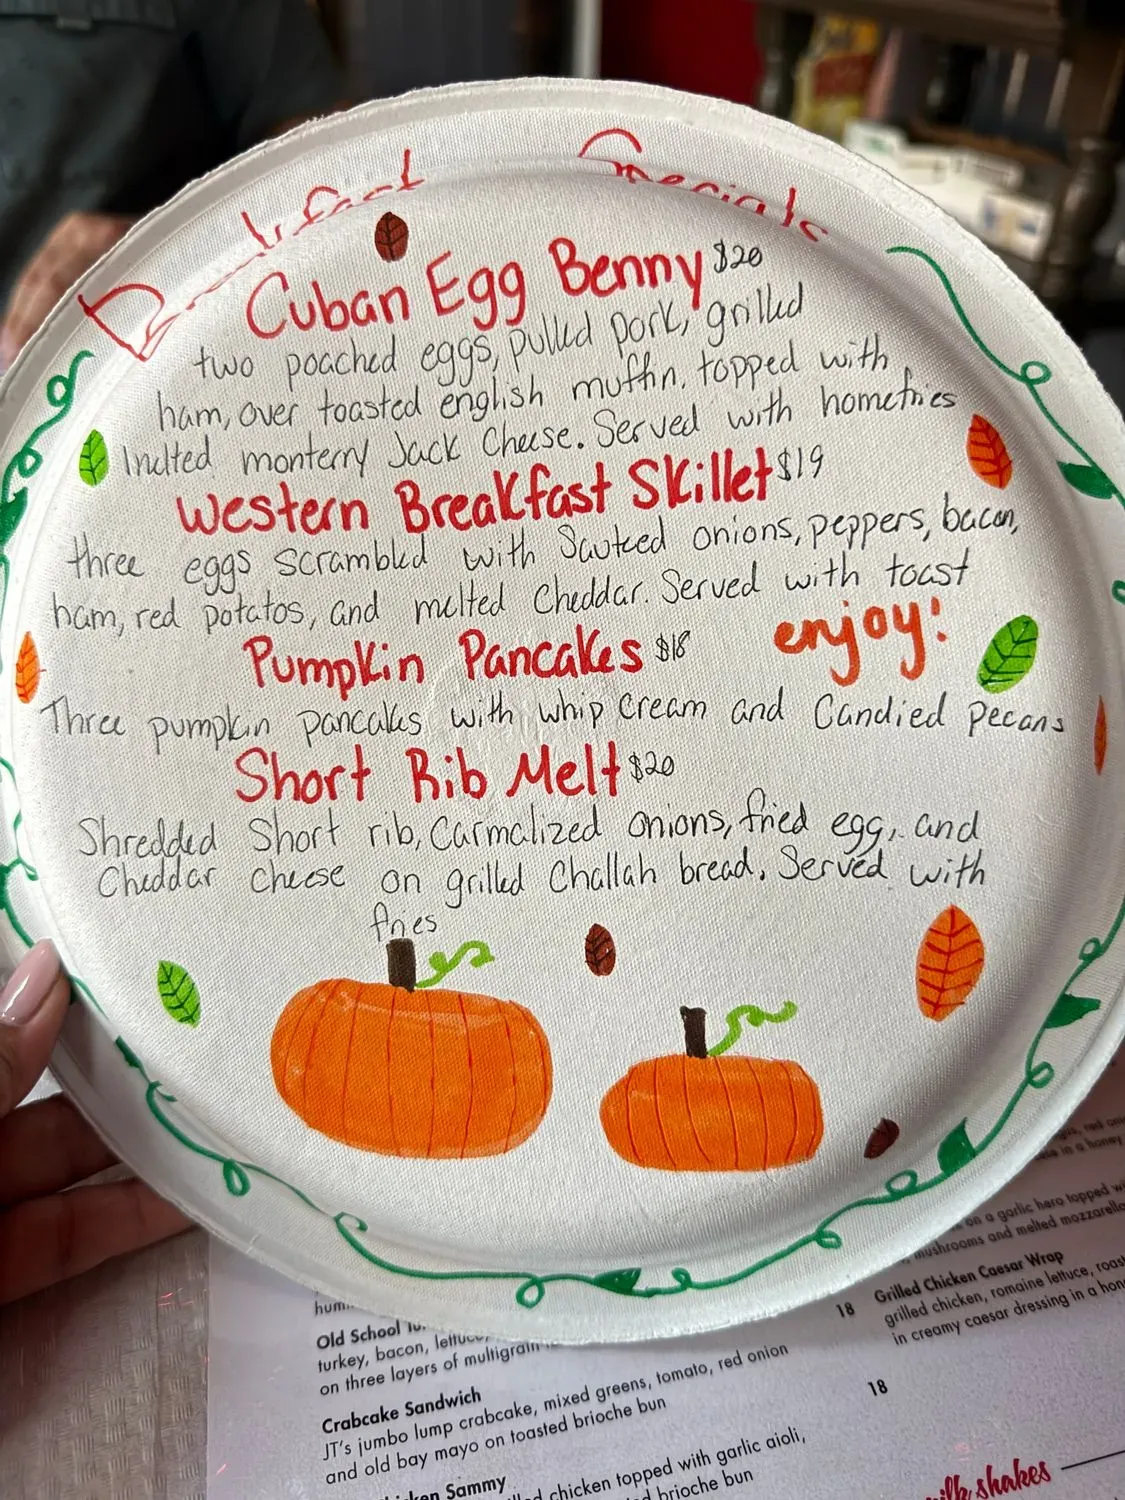 Breakfast Specials
Cuban Egg Benny $20
two poached eggs, pulled pork, grilled
ham, over toasted english muffin. topped with
melted monterry Jack Cheese. Served with homefries
Western Breakfast Skillet $19
three eggs scrambled with Sauteed onions, peppers, bacon,
ham, red potatos, and melted Cheddar. Served with toast
enjoy!
Pumpkin Pancakes $18
Three pumpkin pancakes with whip cream and Candied pecans
Short Rib Melt $20
Shredded Short rib, Carmalized onions, fried egg, and
Cheddar cheese on grilled Challah bread. Served with
fries
Old School
turkey, bacon,
on three layers of multigrain
Crabcake Sandwich
JT's jumbo lump crabcake, mixed greens, tomato, red onion
and old bay mayo on toasted brioche bun
Sammy
chicken topped with garlic aioli,
brioche bun
in a honey
on a garlic hero topped
mushrooms and melted mozzarella
18 Grilled Chicken Caesar Wrap
grilled chicken, romaine lettuce,
in creamy caesar dressing in a
18
shakes